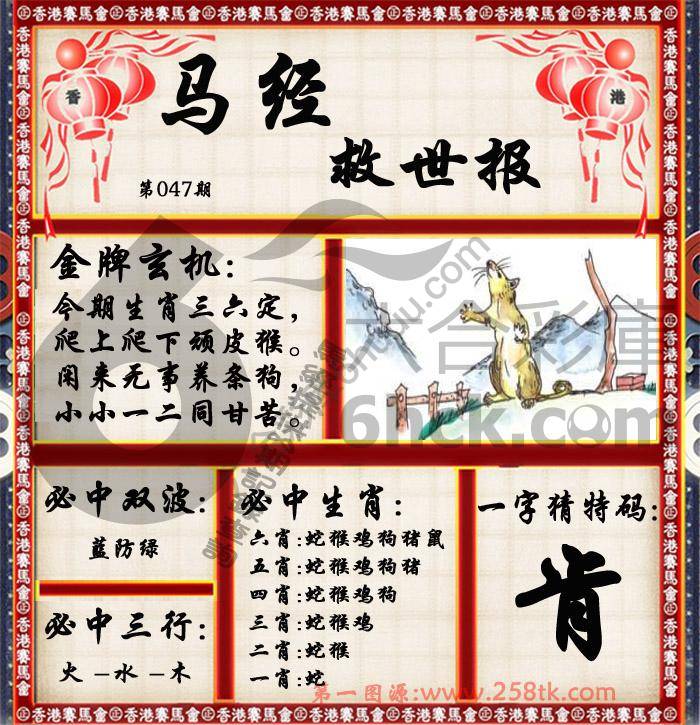 香港賽馬會
香 港
马经
救世报
第047期
金牌玄机:
今期生肖三六定，
爬上爬下顽皮猴。
闲来无事养条狗，
小小一二同甘苦。
六合彩庫
6hck.com
必中双波:
蓝防绿
必中三行:
火-水-木
必中生肖:
六肖:蛇猴鸡狗猪鼠
五肖:蛇猴鸡狗猪
四肖:蛇猴鸡狗
三肖:蛇猴鸡
二肖:蛇猴
一肖:蛇
一字猜特码:
肯
第一图源:www.258tk.com